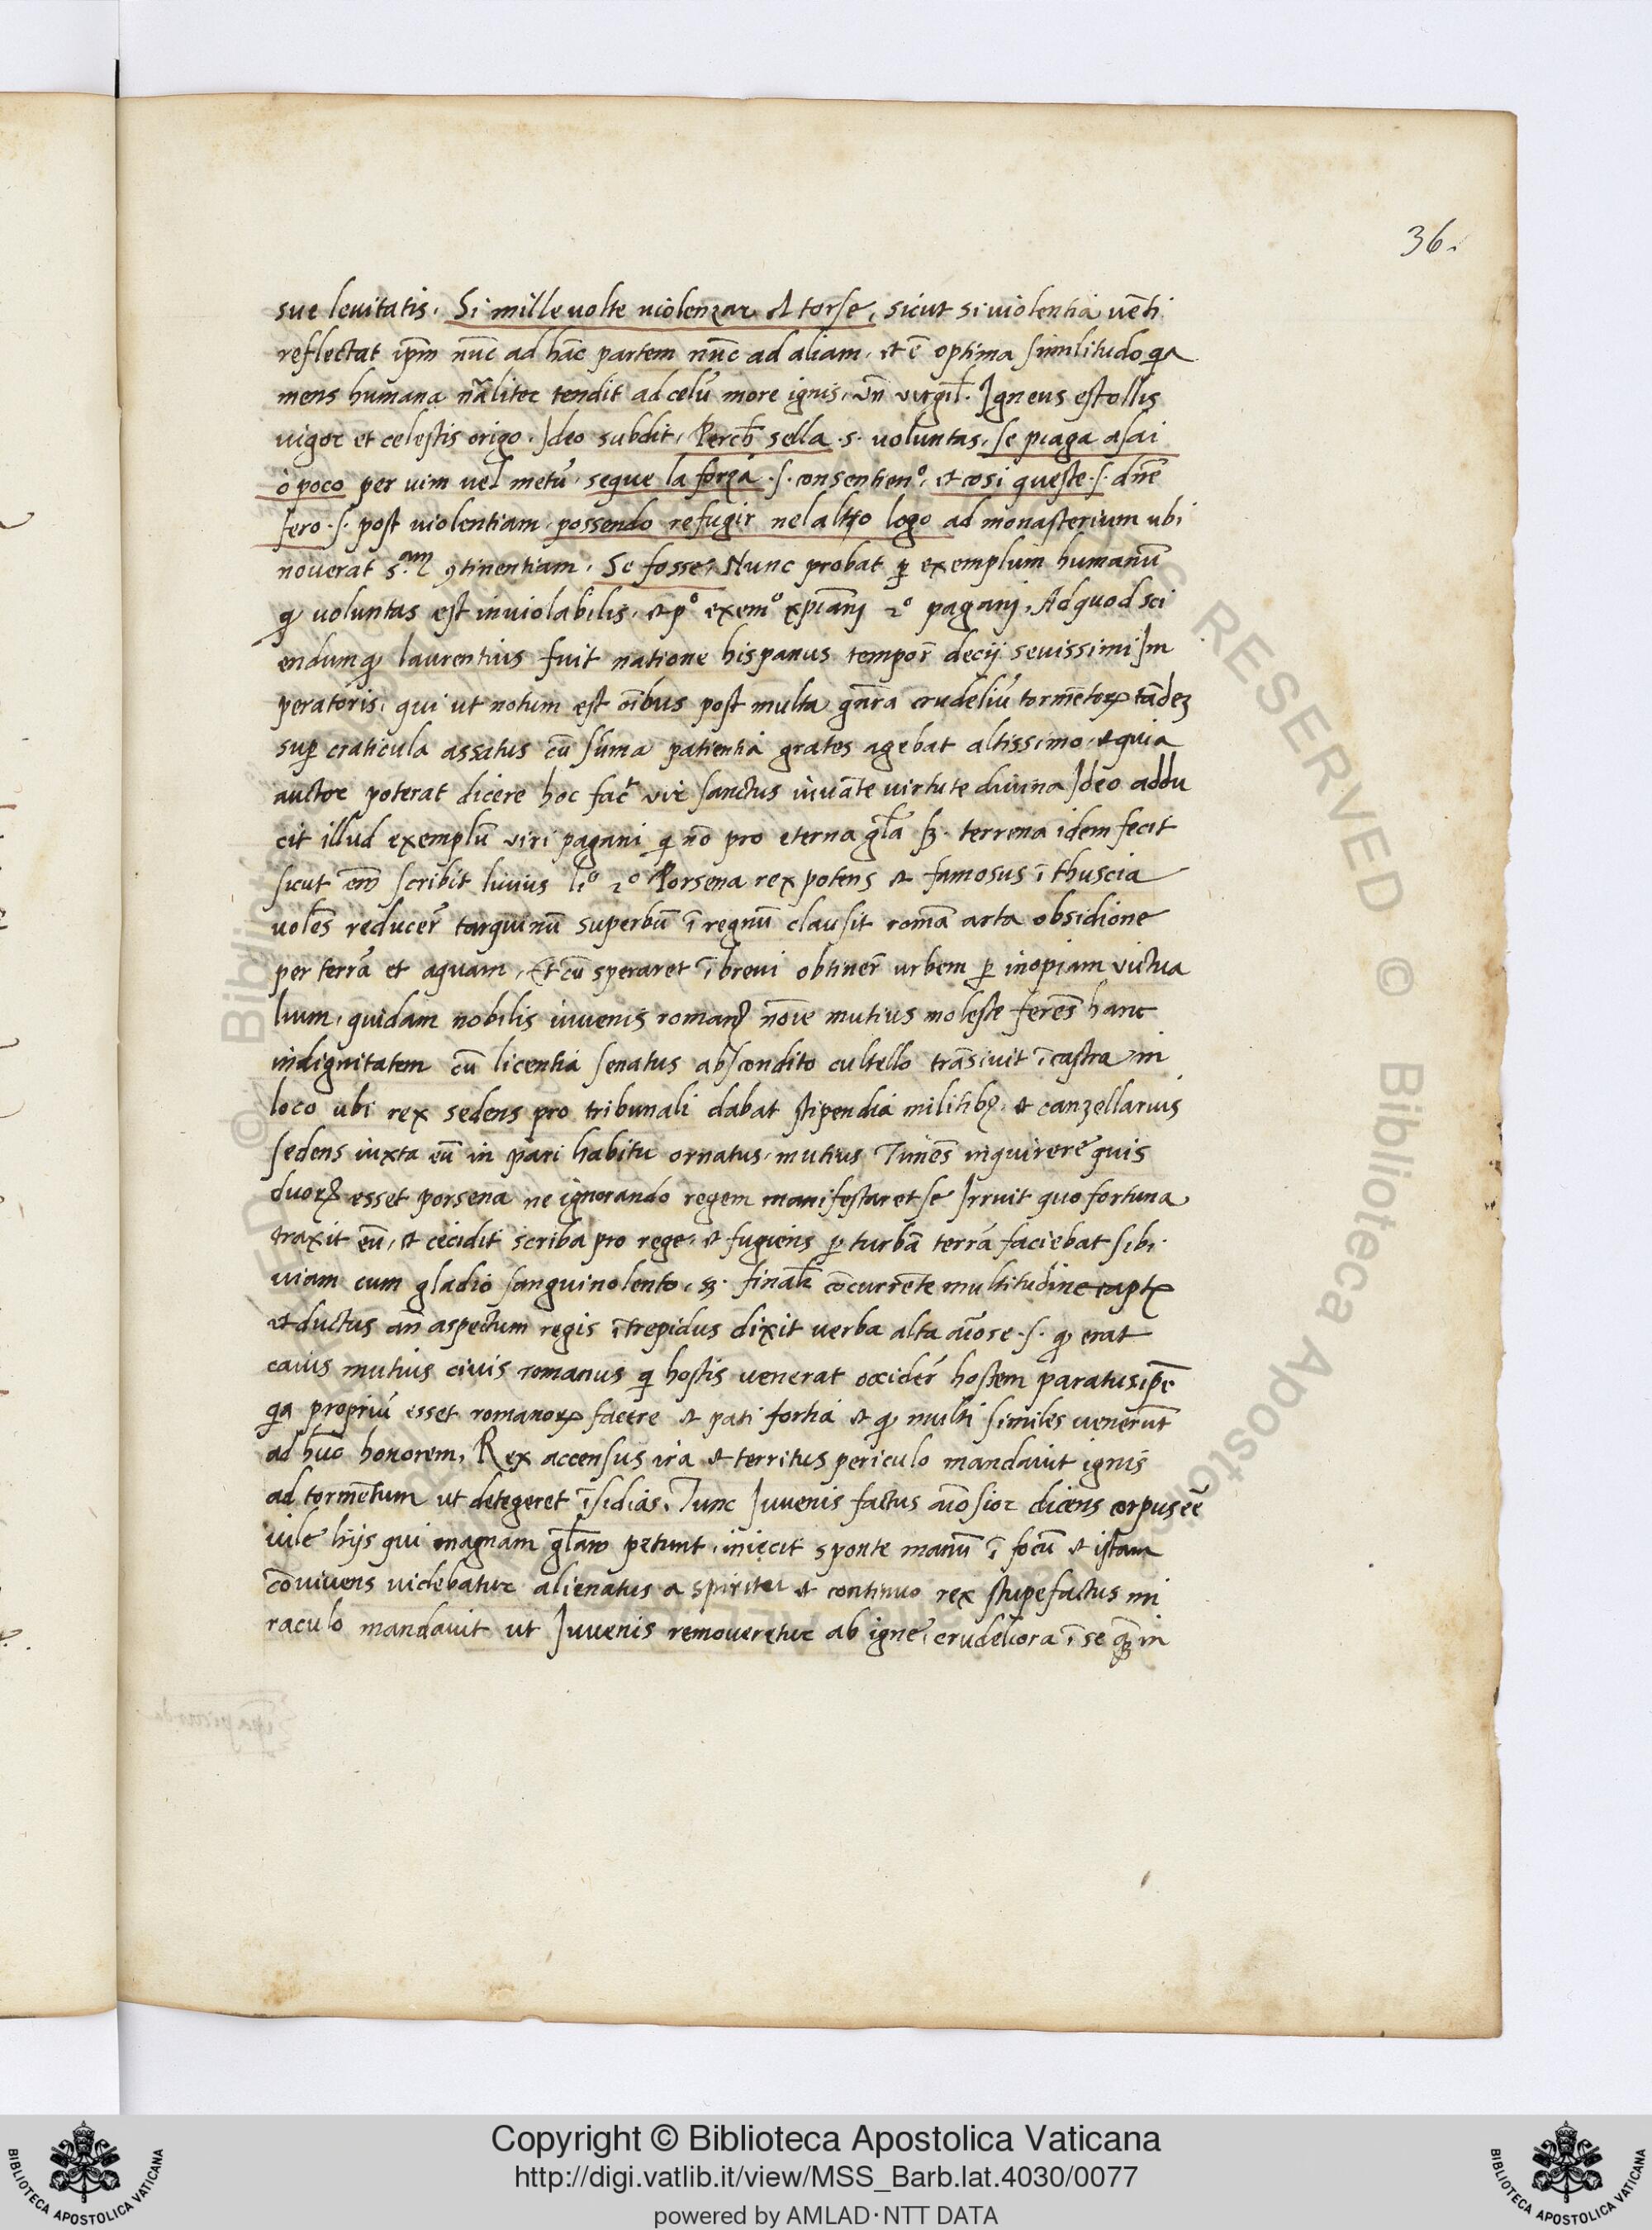 36.
sue leuitatis. Si mille uolte uiolenzar et torse, sicut si uiolentia uēti
reflectat ip̄m nūc ad hāc partem nūc ad aliam. et ē optima similitudo qa
mens humana nāliter tendit ad celū more ignis. vn̄ virgil. Igneus est ollis
uigor et celestis origo. Ideo subdit. Perch̄ sella .s. uoluntas. se piaga asai
ò poco per uim uel metū. seque la forza .s. consentien°. et cosi queste .s. dn̄e
fero .s. post uiolentiam. possendo refugir nel altro logo ad monasterium ubi
nouerat s.am ꝯtinentiam. Se fosse. Nunc probat ꝑ exemplum humanū
ꝙ uoluntas est inuiolabilis. et p° exem° xp̄iani 2° pagani. Ad quod sci
endum ꝙ laurentius fuit natione hispanus tempor̄ decij seuissimi Im
peratoris. qui ut notum est oībus post multa gn̄ra crudeliū tormētoꝝ tādeꝫ
sup̄ craticula assatus cū sūma patientia grates agebat altissimo. et quia
auctor poterat dicere hoc fac̄ vir sanctus iuuāte uirtute diuina Ideo addu
cit illud exemplū viri pagani q nō pro eterna gl̄a sꝫ. terrena idem fecit
sicut em̄ scribit liuius li° 2° Porsena rex potens et famosus ī thuscia
uolēs reducer̄ tarquinū superbū ī regnū clausit romā arta obsidione
per terrā et aquam. Et cū speraret ī breui obtiner̄ urbem ꝑ inopiam victua
lium. quidam nobilis iuuenis romanꝰ noīe mutius moleste ferēs hanc
indignitatem cū licentia senatus abscondito cultello trāsiuit ī castra in
loco ubi rex sedens pro tribunali dabat stipendia militibꝰ. et canzellarius
sedens iuxta eū in pari habitu ornatus. mutius Timēs inquirere quis
duoꝝ esset porsena ne ignorando regem manifestaret se Irruit quo fortuna
traxit eū. et cecidit scriba pro rege. et fugiens ꝑ turbā terrā faciebat sibi
uiam cum gladio sanguinolento. sꝫ. finalr̄ cōcurrēte multitudine captꝰ
et ductus an̄ aspectum regis ītrepidus dixit uerba alta aīose .s. ꝙ erat
caius mutius ciuis romanus q hostis uenerat occider̄ hostem paratus ip̄e
qa propriū esset romanoꝝ facere et pati fortia et ꝙ multi similes uenerūt
ad hūc honorem. Rex accensus ira et territus periculo mandauit ignis
ad tormētum ut detegeret īsidias. Tunc Iuuenis factus aīosior dicens corpus eē
uile hijs qui magnam gl̄am petunt. iniecit sponte manū ī focū et istam
cōuiuens uidebatur alienatus a spiritu et continuo rex stupefactus mi
raculo mandauit ut Iuuenis remoueretur ab igne. crudeliora ī se qm̄ in
Copyright © Biblioteca Apostolica Vaticana
http://digi.vatlib.it/view/MSS_Barb.lat.4030/0077
powered by AMLAD·NTT DATA